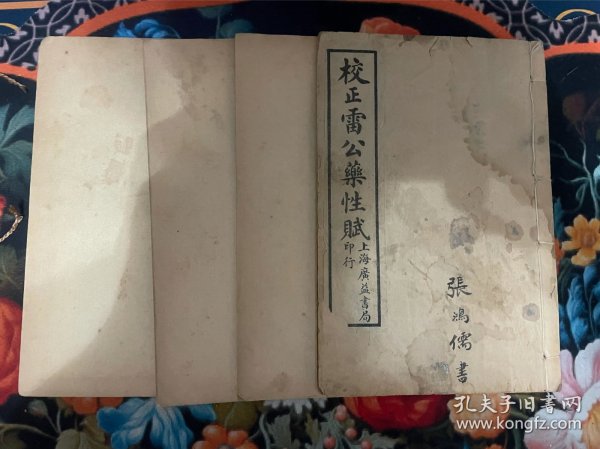 校正雷公藥性賦
上海廣益書局
印行
張鴻儒書
孔夫子旧书网
www.kongfz.com